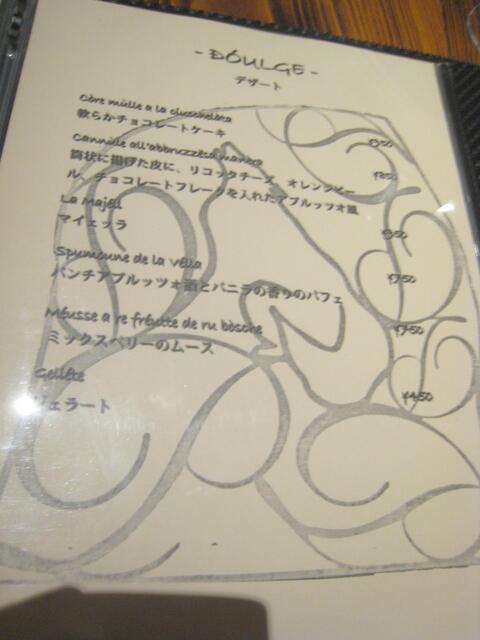 - DÓULGE -
デザート
Còre mùlle a la ciucchelàta
軟らかチョコレートケーキ
Cannùle all'abbruzzésa manèra
筒状に揚げた皮に、リコッタチーズ オレンジピー
ル、チョコレートフレークを入れたアブルッツオ風
La Majèll
マイェッラ
Spumoune de la Vèlla
パンチアブルッツォ酒とバニラの香りのパフェ
¥750
Méusse a re fréutte de ru bòsche
ミックスベリーのムース
¥750
Gelléte
ジェラート
¥450